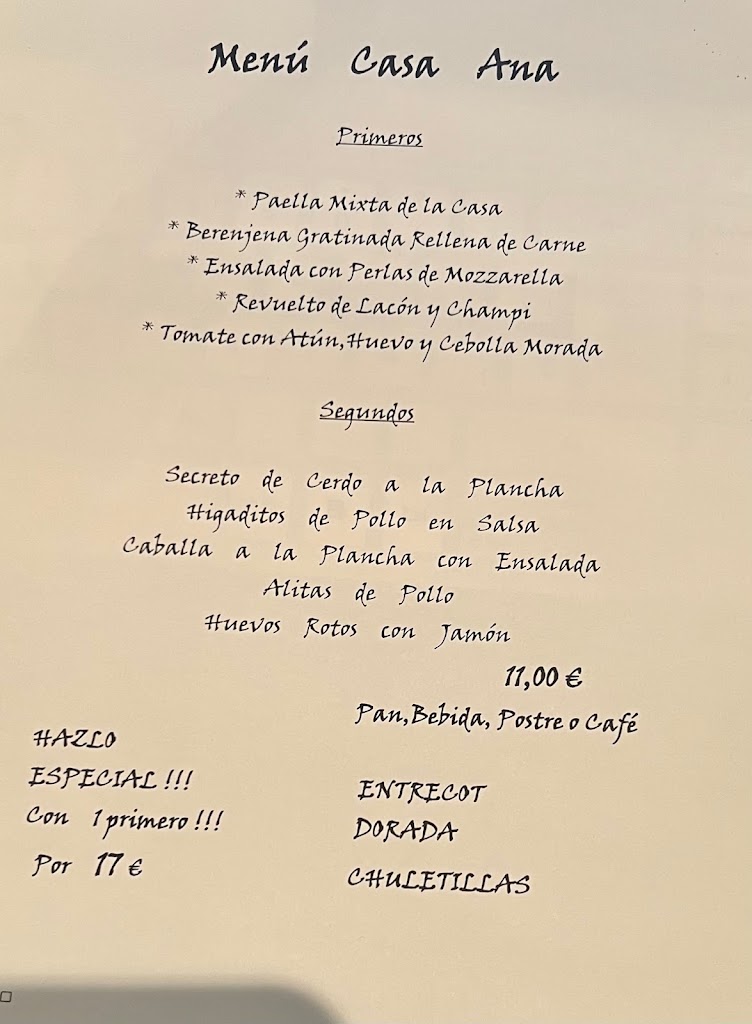 Menú Casa Ana
Primeros
* Paella Mixta de la Casa
* Berenjena Gratinada Rellena de Carne
* Ensalada con Perlas de Mozzarella
* Revuelto de Lacón y Champi
* Tomate con Atún,Huevo y Cebolla Morada
Segundos
Secreto de Cerdo a la Plancha
Higaditos de Pollo en Salsa
Caballa a la Plancha con Ensalada
Alitas de Pollo
Huevos Rotos con Jamón
11,00 €
Pan,Bebida, Postre o Café
HAZLO
ESPECIAL !!!
Con 1 primero !!!
Por 17 €
ENTRECOT
DORADA
CHULETILLAS